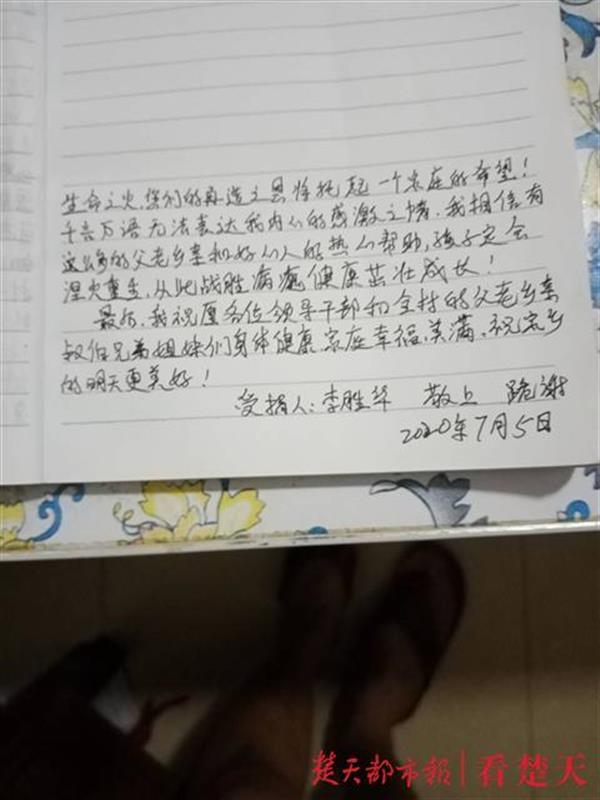 生命之火,您们的再造之恩将托起一个家庭的希望!
千言万语无法表达我内心的感激之情,我相信有
这么多的父老乡亲和好心人的热心帮助,孩子定会
涅火重生,从此战胜病魔健康茁壮成长!
最后,我祝愿各位领导干部和全村的父老乡亲
叔伯兄弟姐妹们身体健康家庭幸福,美满,祝家乡
的明天更美好!
受捐人:李胜华 敬上 跪谢
2020年7月5日
楚天都市报|看楚天